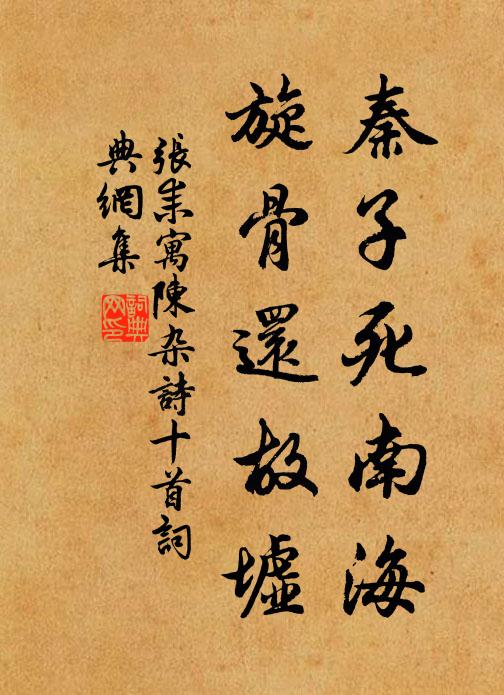 秦子死南海
旋骨還故墟
張耒寓陳杂詩十首詞
典網集
詞典网印